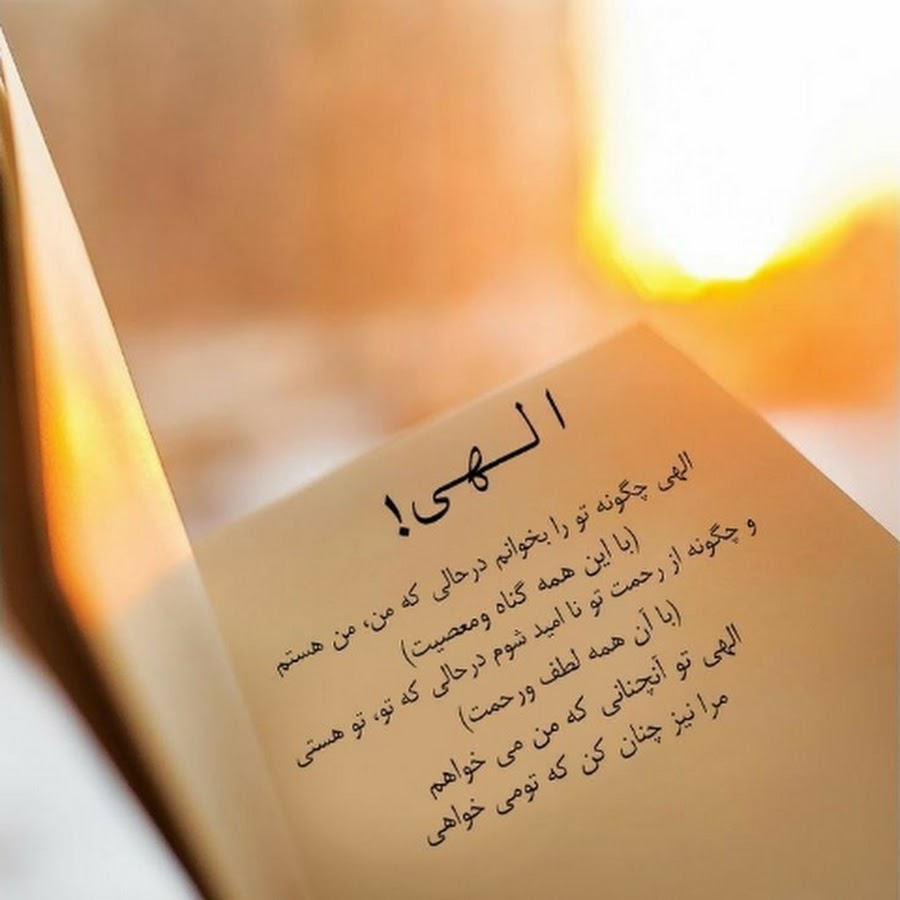 الهی!
الهی چگونه تو را بخوانم درحالی که من، من هستم
(با این همه گناه ومعصیت)
و چگونه از رحمت تو نا امید شوم درحالی که تو، تو هستی
(با آن همه لطف ورحمت)
الهی تو آنچنانی که من می خواهم
مرا نیز چنان کن که تومی خواهی